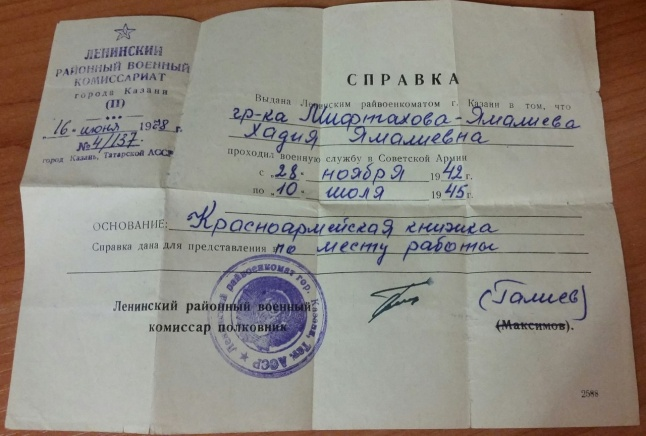 ЛЕНИНСКИЙ
РАЙОННЫЙ ВОЕННЫЙ
КОМИССАРИАТ
города Казани
(II)
16 июня 1978 г.
№ 4/137.
город Казань, Татарской АССР
СПРАВКА
Выдана Ленинским райвоенкоматом г. Казани в том, что
гр-ка Мифтахова-Ямалиева
Хадия Ямалиевна
проходил военную службу в Советской Армии
с „28“ ноября 1942 г.
по „10“ июля 1945 г.
ОСНОВАНИЕ: Красноармейская книжка
Справка дана для представления в по месту работы
Ленинский районный военный
комиссар полковник
(Галиев)
(Максимов).
Ленинский райвоенкомат гор. Казань, Тат. АССР
2588